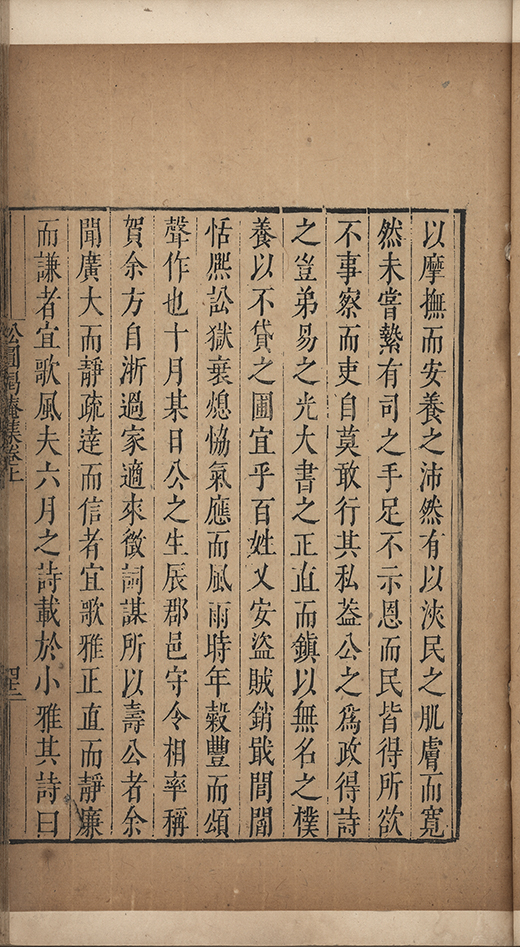 以摩撫而安養之沛然有以浹民之肌膚而寬
然未嘗縶有司之手足不示恩而民皆得所欲
不事察而吏自莫敢行其私葢公之爲政得詩
之豈弟易之光大書之正直而鎮以無名之樸
養以不貸之圃宜乎百姓乂安盜賊銷戢閭閻
恬熈訟獄衰熄恊氣應而風雨時年糓豐而頌
聲作也十月某日公之生辰郡邑守令相率稱
賀余方自浙過家適來徵詞謀所以壽公者余
聞廣大而靜疏達而信者宜歌雅正直而靜廉
而謙者宜歌風夫六月之詩載於小雅其詩曰
松圓偈庵集卷上